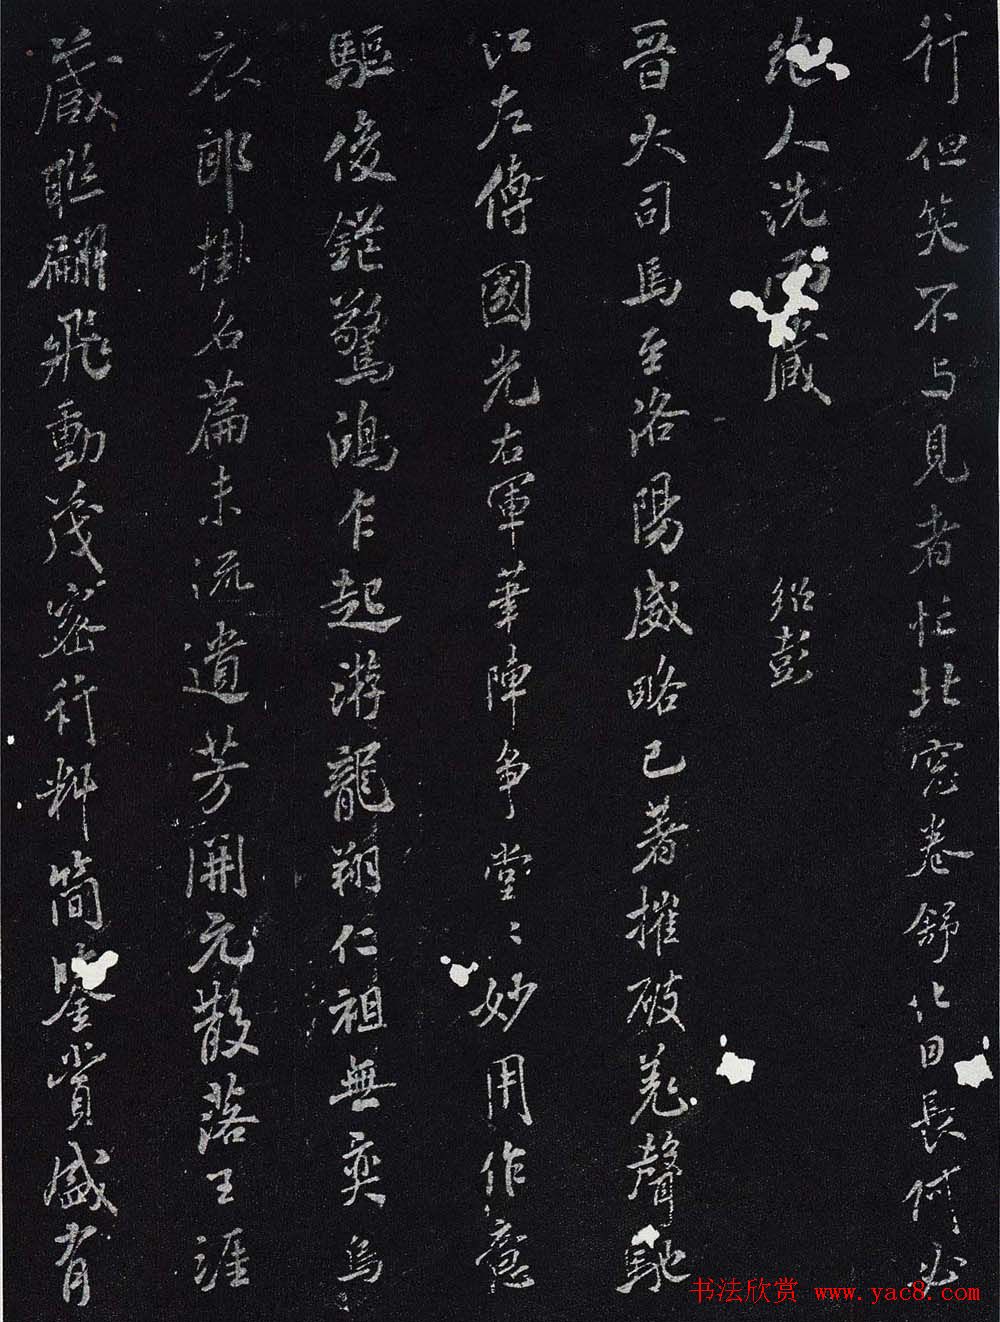 行但笑不与見者忙北窓卷舒化日長何必
絶人洗而藏
紹彭
晋大司馬至洛陽威略已著摧破羌聲馳
江左傅國光右軍筆陣争堂〻妙用作意
驅俊鋩驚鴻乍起游龍翔仁祖無奕烏
衣郎掛名篇末流遺芳開元散落王涯
藏聯翩飛動茂密行料簡鑒賞盛有
书法欣赏 www.yac8.com